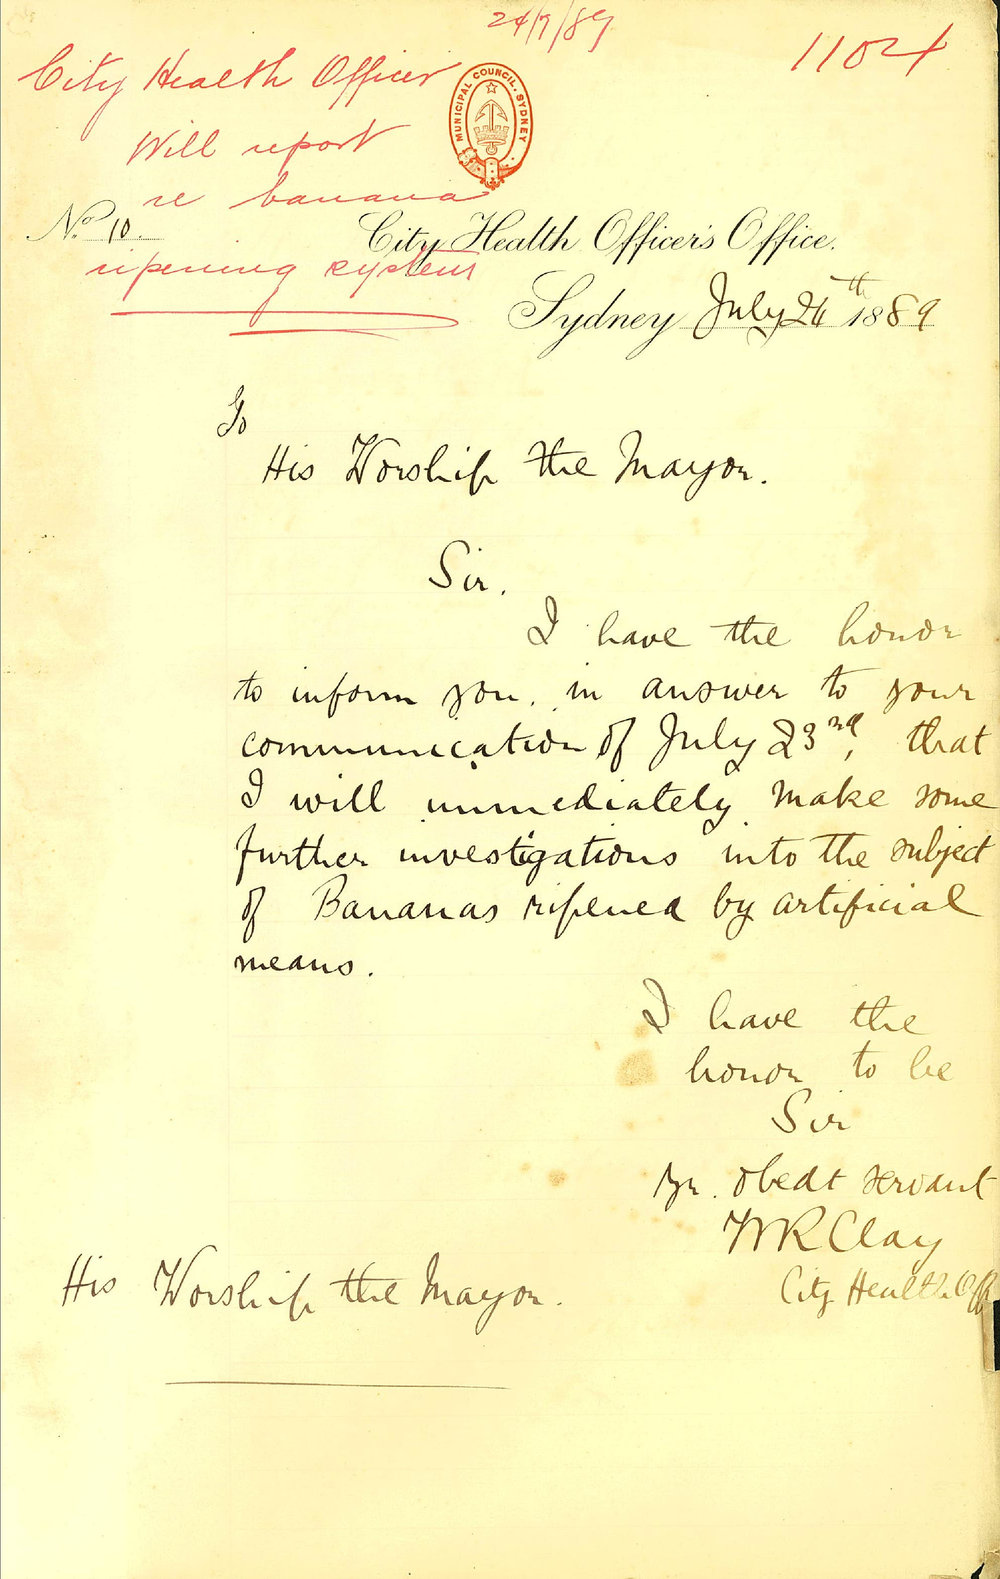 24/7/89
1104
City Health Officer
Will report
re banana
ripening system
MUNICIPAL COUNCIL. SYDNEY
No. 10.
City Health Officer's Office.
Sydney July 24th 1889
To
His Worship the Mayor.
Sir.
I have the honor
to inform you, in answer to your
communication of July 23rd, that
I will immediately make some
further investigations into the subject
of Bananas ripened by artificial
means.
I have the
honor to be
Sir
Yr. obedt servant
WR Clay
City Health Off
His Worship the Mayor.